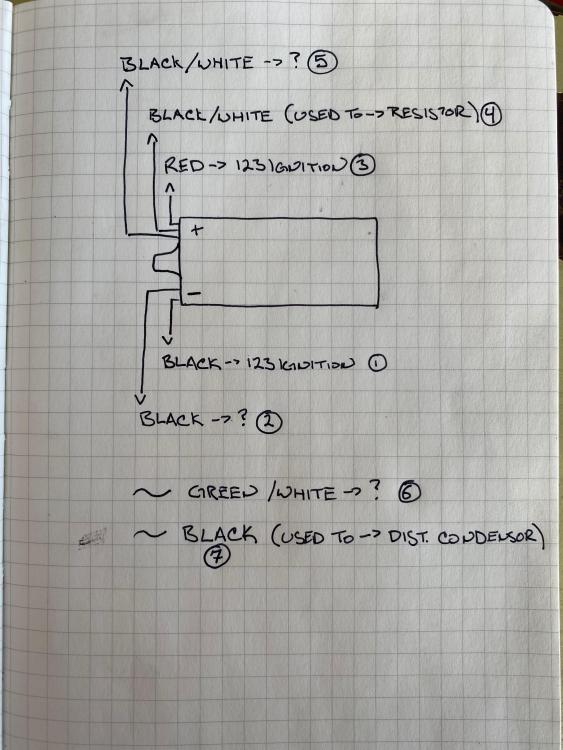 BLACK/WHITE -> ? ⑤
BLACK/WHITE (USED TO -> RESISTOR) ④
RED -> 123 IGNITION ③
+
-
BLACK -> 123 IGNITION ①
BLACK -> ? ②
~ GREEN/WHITE -> ? ⑥
~ BLACK (USED TO -> DIST. CONDENSOR)
⑦